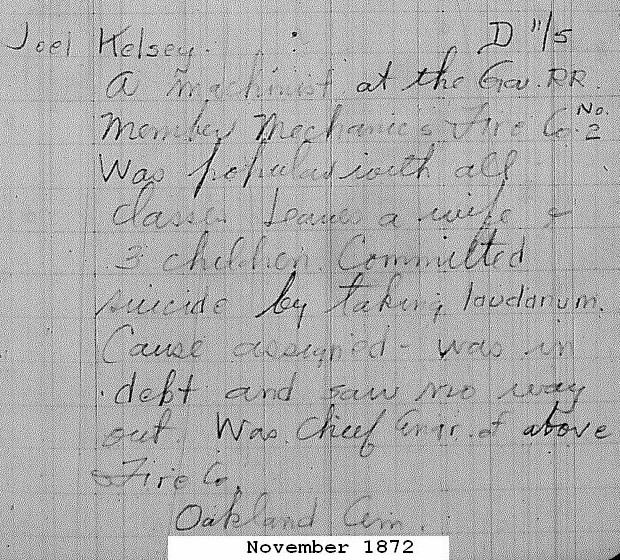 Joel Kelsey. D 11/5
A machinist at the Ga. RR.
Member Mechanic's Fire Co. No. 2
Was popular with all
classes Leaves a wife &
3 children. Committed
suicide by taking laudanum.
Cause assigned - was in
debt and saw no way
out. Was Chief Engr. of above
Fire Co.
Oakland Cem.
November 1872